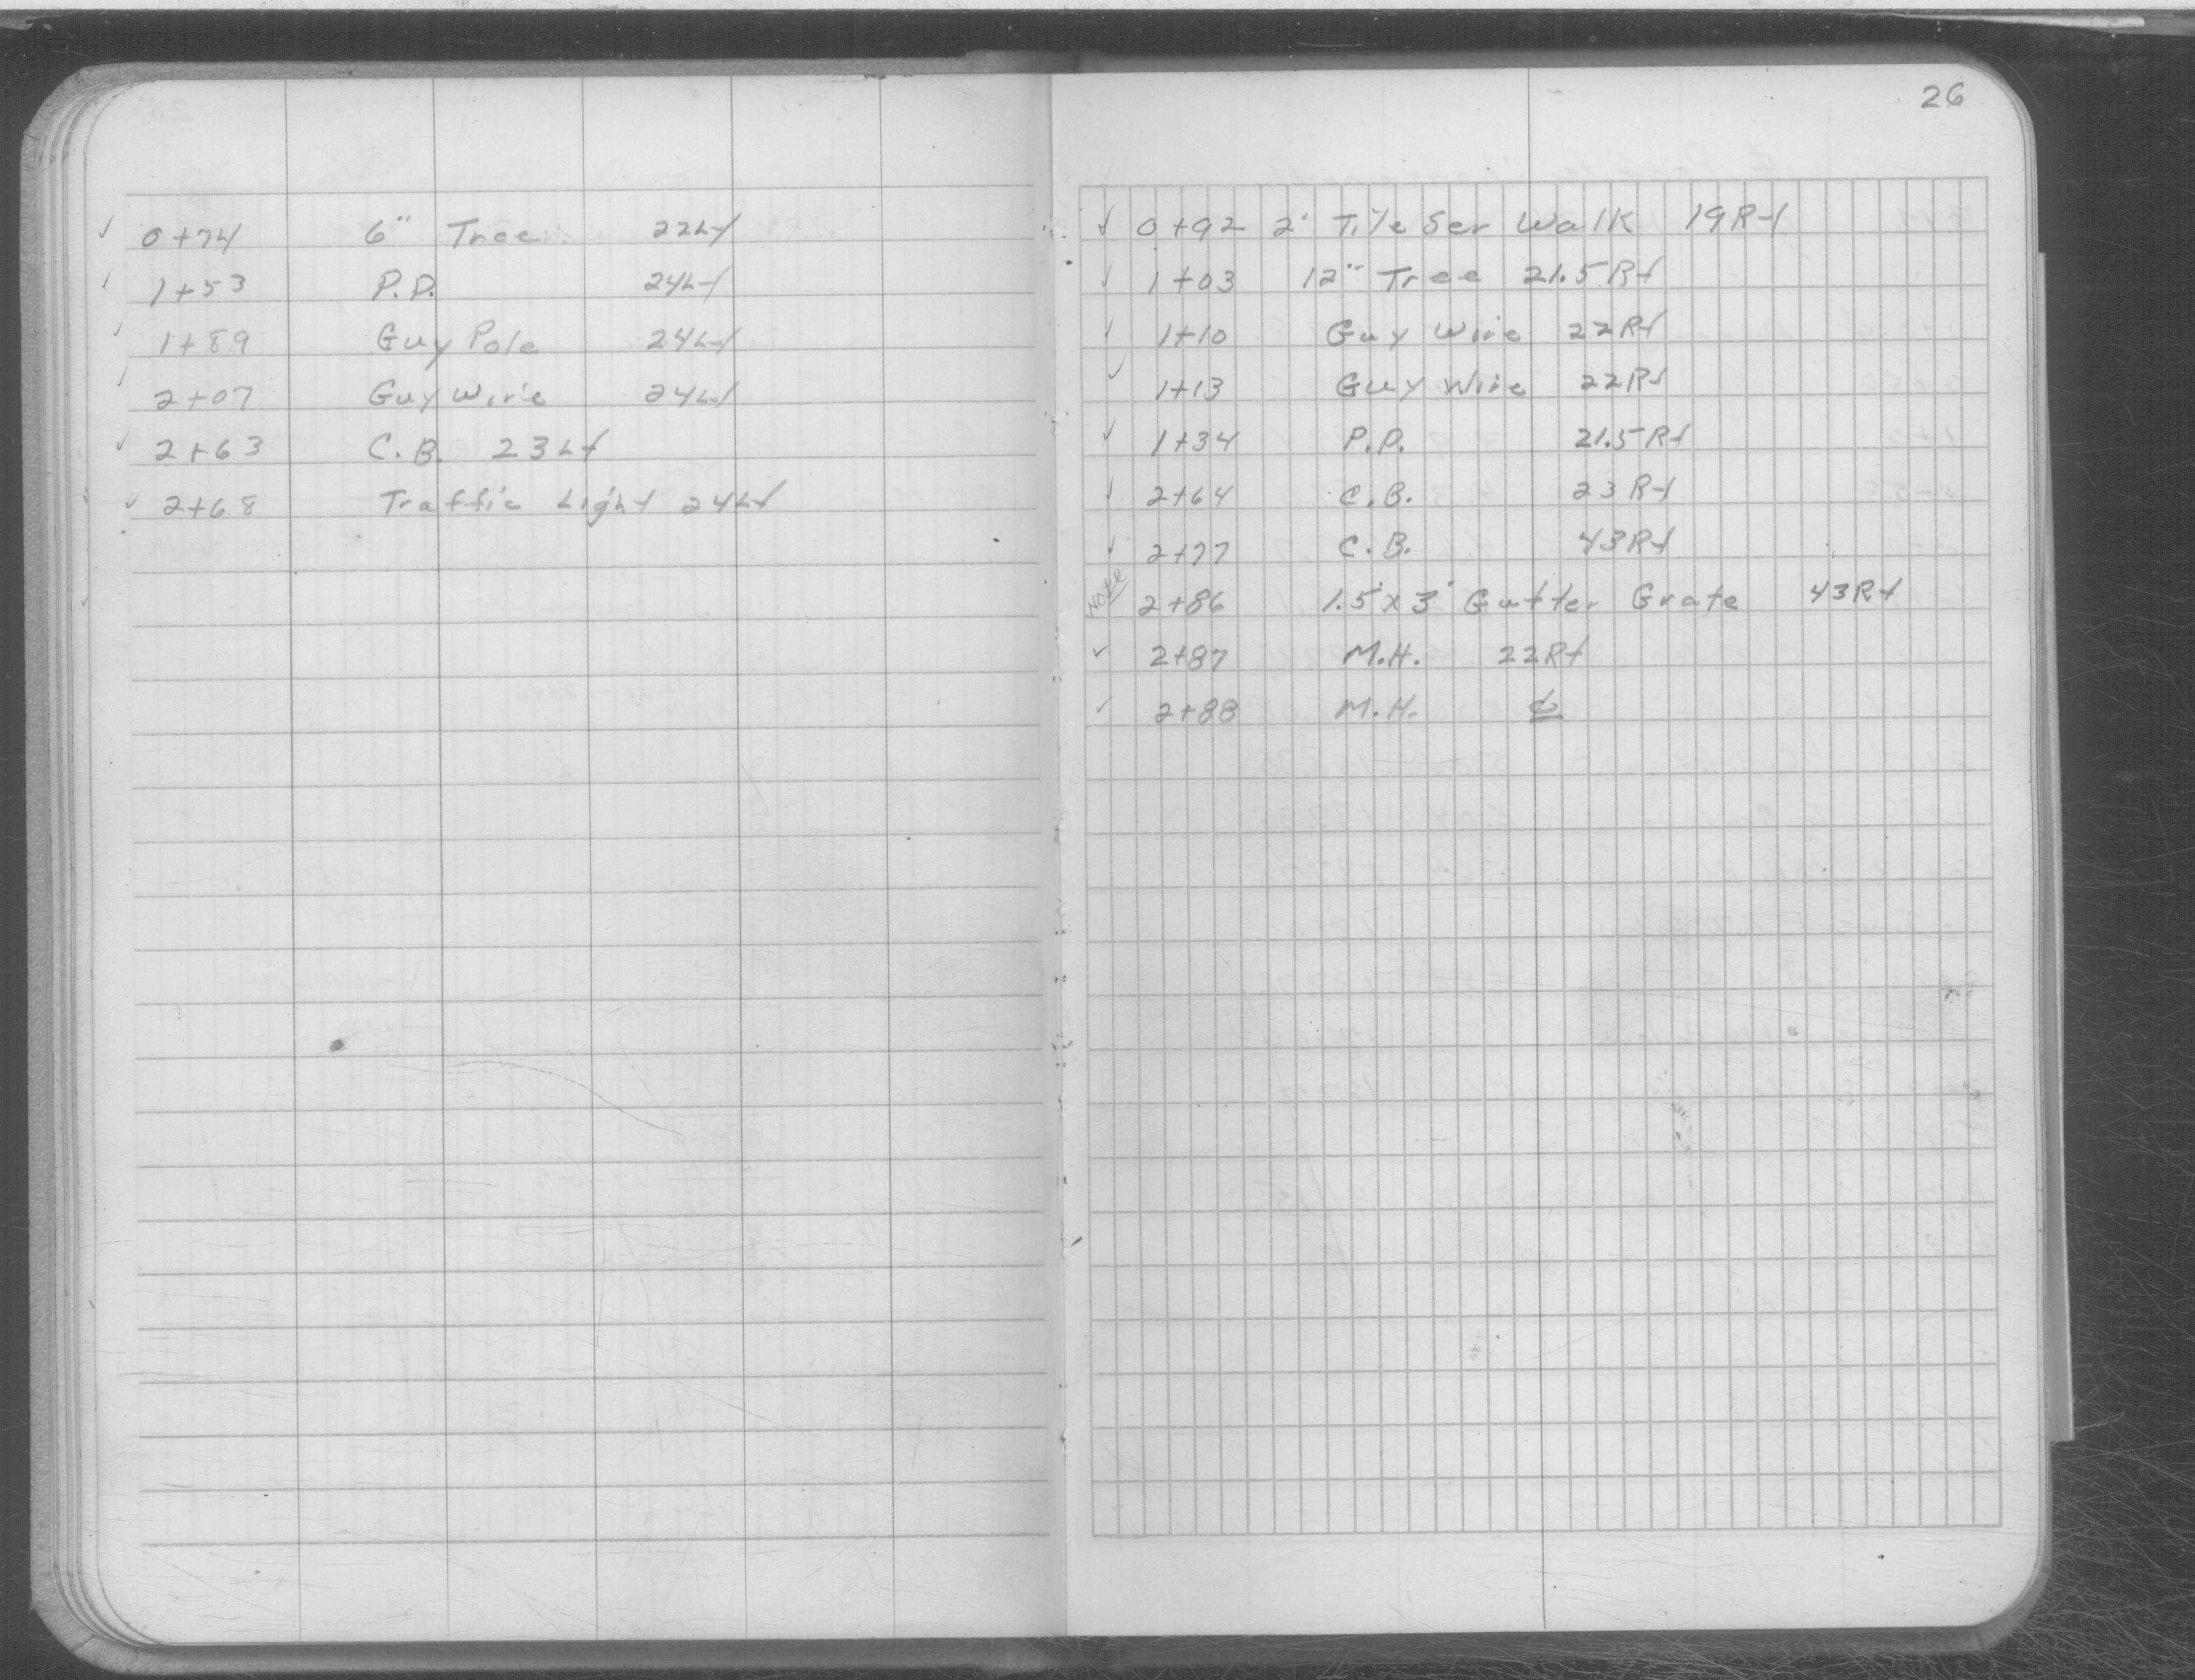 ✓ 0+74 6" Tree 22Lt
✓ 1+53 P.P. 24Lt
✓ 1+89 Guy Pole 24Lt
✓ 2+07 Guy Wire 24Lt
✓ 2+63 C.B. 23Lt
✓ 2+68 Traffic Light 24Lt
26
✓ 0+92 2' Tile Ser Walk 19Rt
✓ 1+03 12" Tree 21.5Rt
✓ 1+10 Guy Wire 22Rt
✓ 1+13 Guy Wire 22Rt
✓ 1+34 P.P. 21.5Rt
✓ 2+64 C.B. 23Rt
✓ 2+77 C.B. 43Rt
Note 2+86 1.5'x3' Gutter Grate 43Rt
✓ 2+87 M.H. 22Rt
✓ 2+88 M.H. ℄